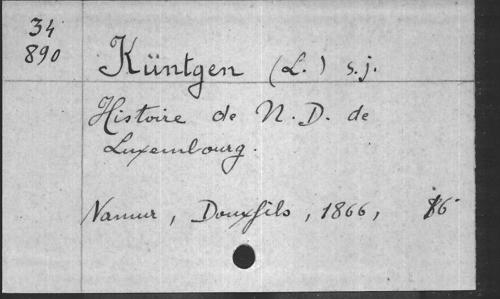 34
890
Küntgen (L.) s.j.
Histoire de N. D. de
Luxembourg.
Namur, Douxfils, 1866,